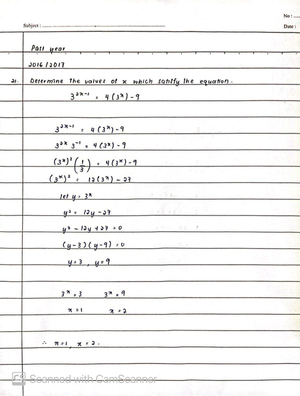 No :
Subject :
Date :
Past year
2016/2017
21. Determine the values of x which satisfy the equation.
3²ˣ⁻¹ = 4(3ˣ) - 9
3²ˣ⁻¹ = 4(3ˣ) - 9
3²ˣ 3⁻¹ = 4(3ˣ) - 9
(3ˣ)² (1/3) = 4(3ˣ) - 9
(3ˣ)² = 12(3ˣ) - 27
let y = 3ˣ
y² = 12y - 27
y² - 12y + 27 = 0
(y-3)(y-9) = 0
y = 3, y = 9
3ˣ = 3 3ˣ = 9
x = 1 x = 2
∴ x = 1, x = 2.
Scanned with CamScanner